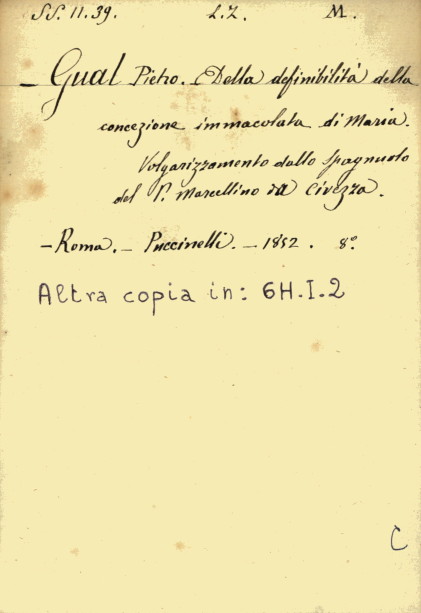 SS. 11. 39. L. Z. M.
- Gual Pietro. Della definibilità della
concezione immacolata di Maria.
Volgarizzamento dallo spagnuolo
del P. Marcellino da Civezza.
- Roma. - Puccinelli. - 1852. 8°.
Altra copia in: 6H.I.2
C